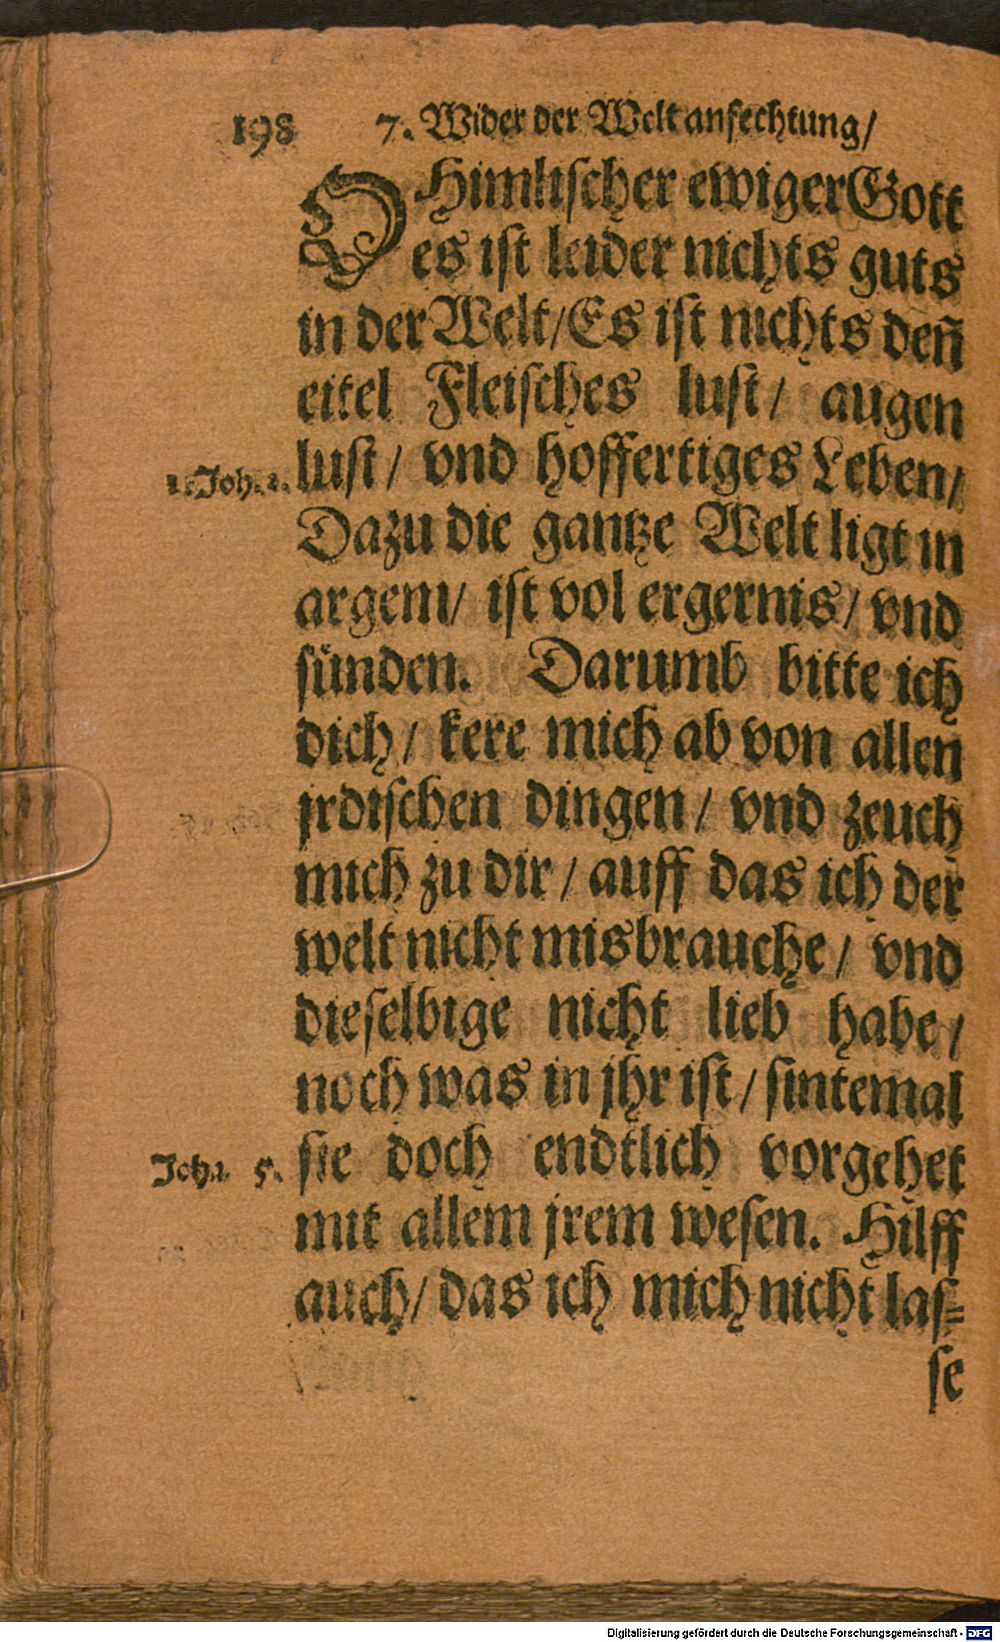 198 7. Wider der Welt anfechtung/
O Himlischer ewiger Gott
es ist leider nichts guts
in der Welt/Es ist nichts deñ
eitel Fleisches lust/ augen
1. Joh. 2. lust/ vnd hoffertiges Leben/
Dazu die gantze Welt ligt in
argem/ ist vol ergernis/ vnd
sünden. Darumb bitte ich
dich/ kere mich ab von allen
jrdischen dingen/ vnd zeuch
mich zu dir/ auff das ich der
welt nicht misbrauche/ vnd
dieselbige nicht lieb habe/
noch was in jhr ist/ sintemal
Joh. 5. sie doch endtlich vorgehet
mit allem jrem wesen. Hilff
auch/ das ich mich nicht las=
se
Digitalisierung gefördert durch die Deutsche Forschungsgemeinschaft - DFG